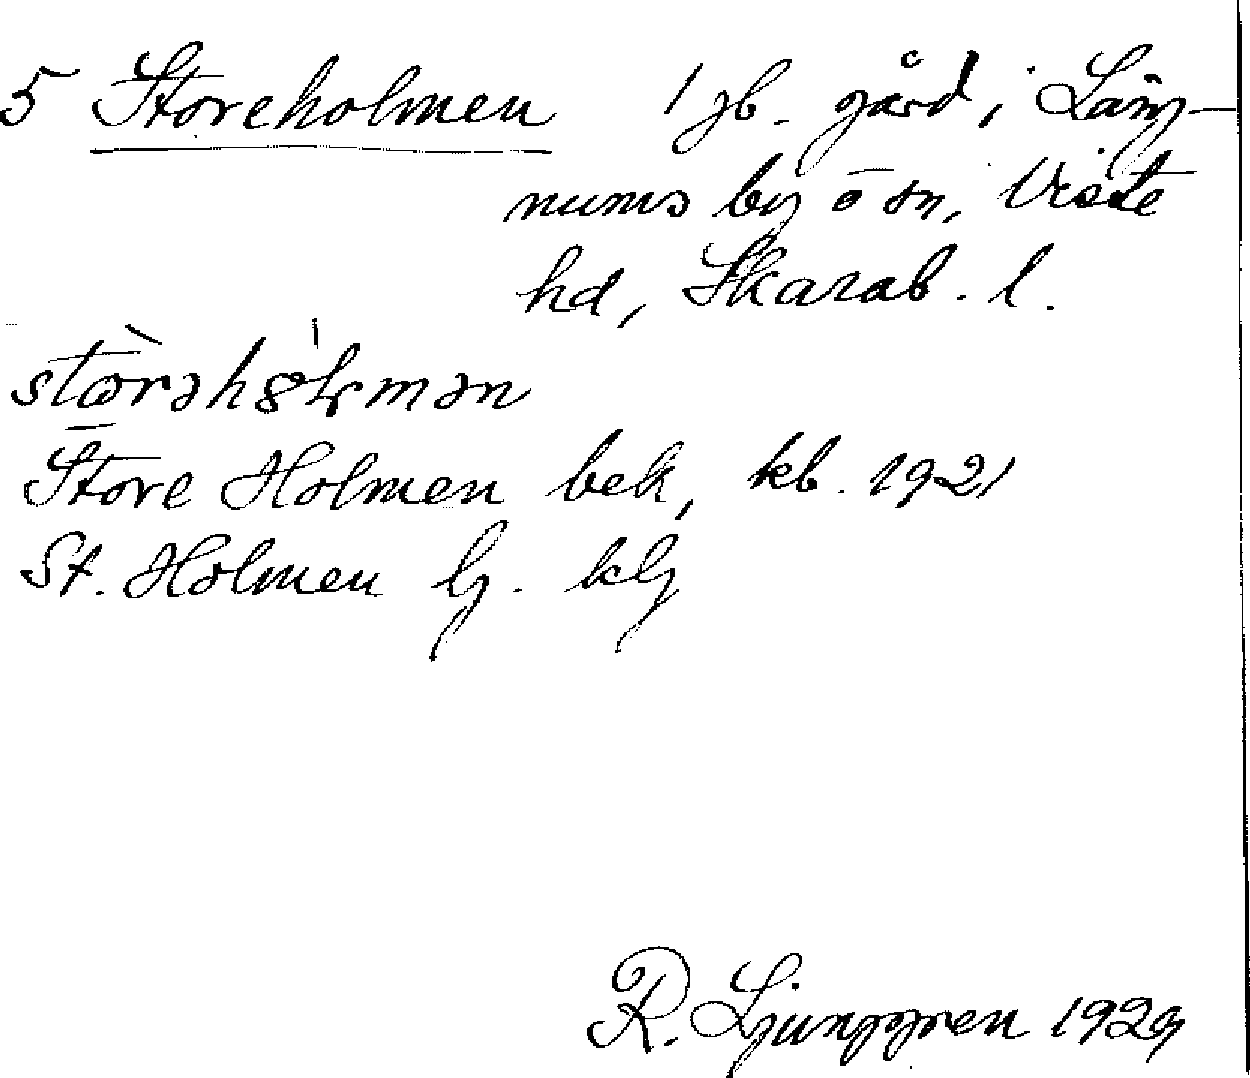 5 Storeholmen 1 jb. gård i Läng-
nums by o sn, Viste
hd, Skarab. l.
Store Holmen bek, kb. 1921
St. Holmen
R. Ljunggren 1929